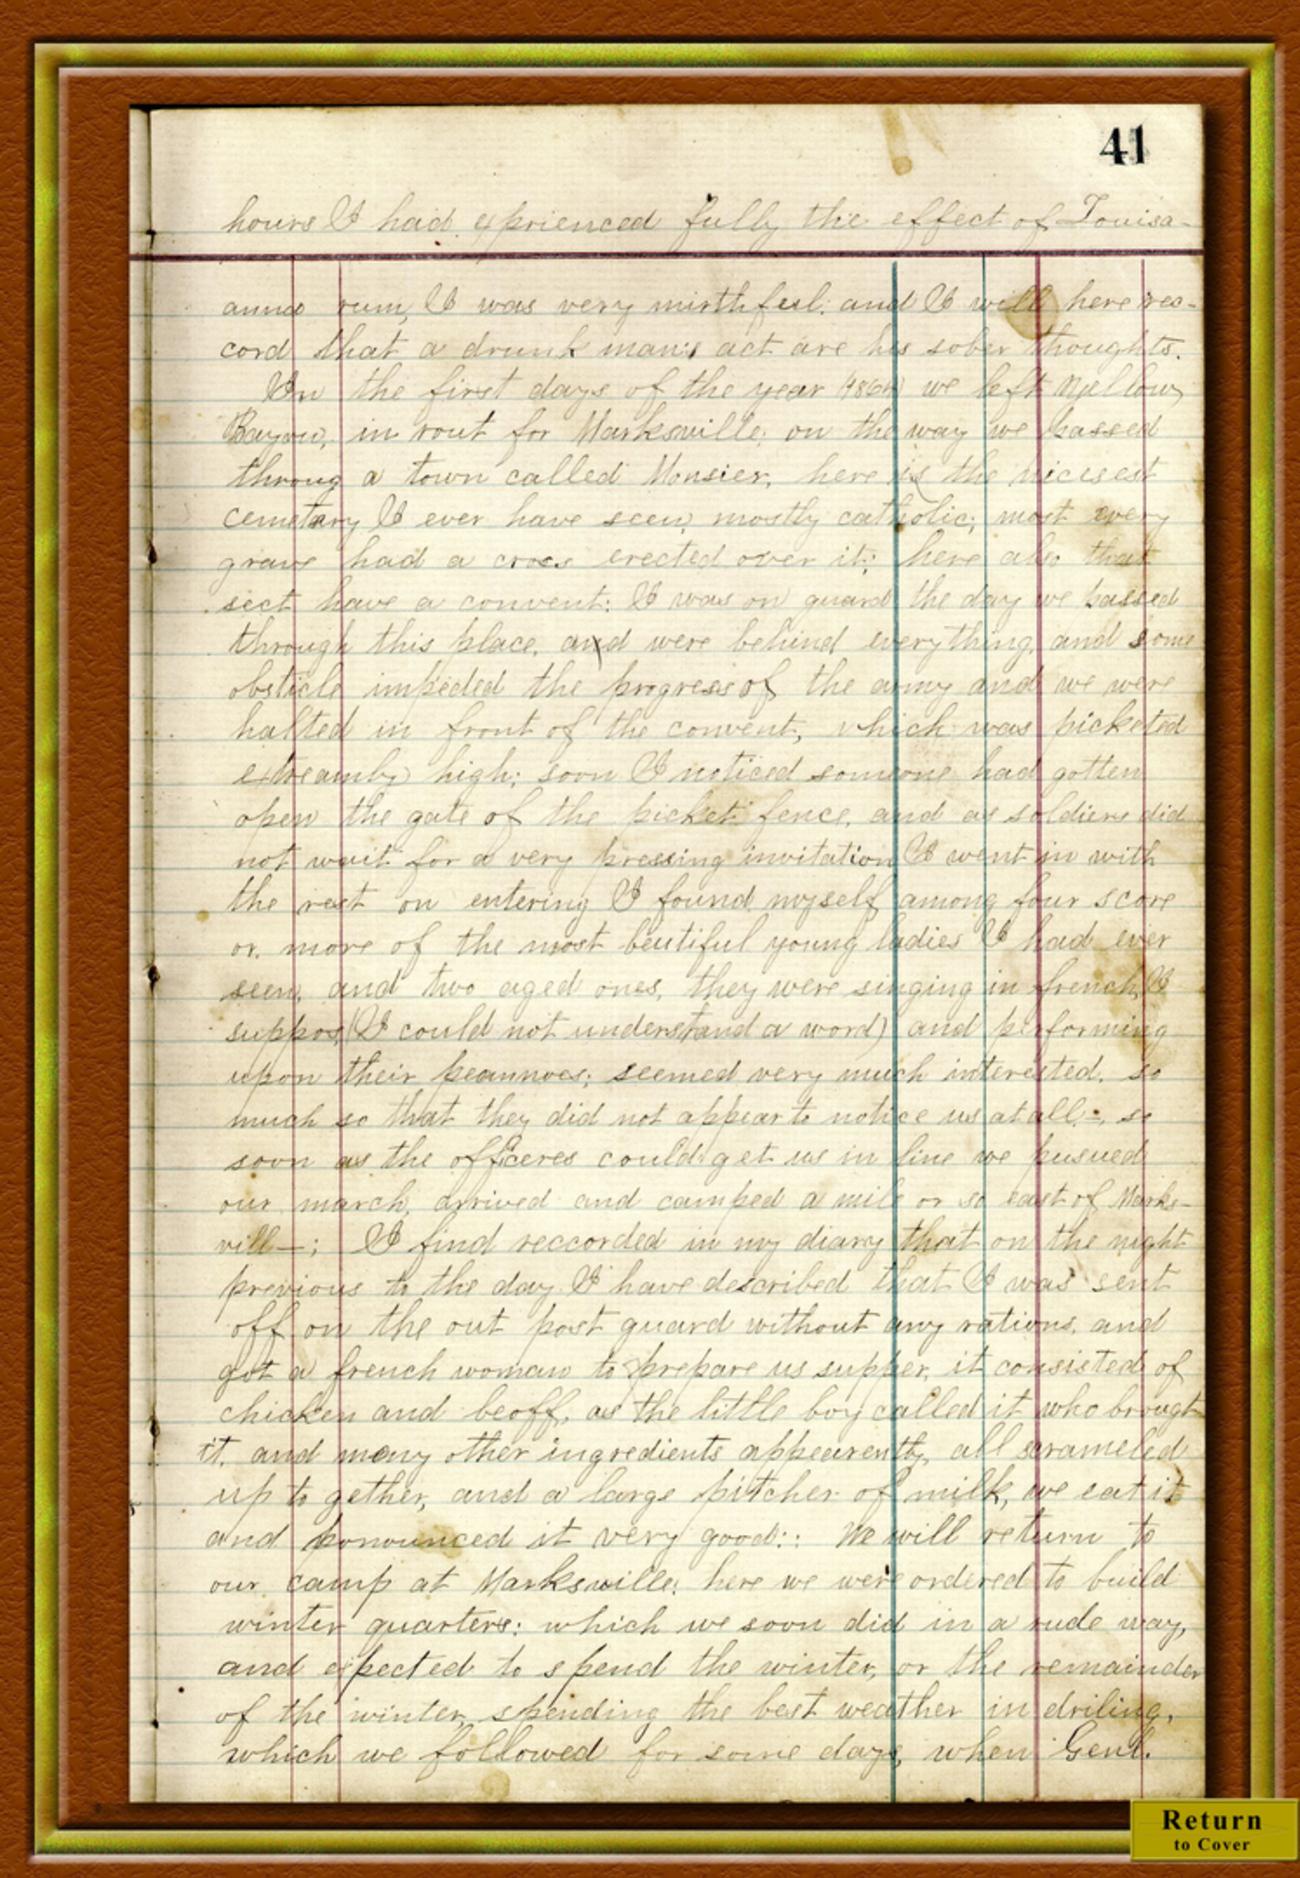 41
hours I had exprienced fully the effect of Louisa-
anna rum, I was very mirthful: and I will here rec-
cord that a drunk man's act are his sober thoughts.
In the first days of the year (1864) we left Mellow
Bayou, in rout for Marksville; on the way we passed
throug a town called Monsier, here is the nicesest
cemetary I ever have seen, mostly catholic; most every
grave had a cross erected over it; here also that
sect have a convent: I was on guard the day we passed
through this place, and were behind everything, and some
obsticle impeded the progress of the army and we were
halted in front of the convent, which was picketed
extreamly high; soon I noticed someone had gotten
open the gate of the picket fence, and as soldiers did
not wait for a very pressing invitation I went in with
the rest on entering I found myself among four score
or more of the most beutiful young ladies I had ever
seen, and two aged ones, they were singing in french, I
suppos, (I could not understand a word) and performing
upon their peannoes; seemed very much interested, so
much so that they did not appear to notice us at all-, so
soon as the officeres could get us in line we pusued
our march, arrived and camped a mile or so east of Marks-
vill—; I find reccorded in my diary that on the night
previous to the day I have described that I was sent
off on the out post guard without any rations, and
got a french woman to prepare us supper, it consisted of
chicken and beoff, as the little boy called it who brought
it, and many other ingredients appearently, all scrameled
up to gether, and a large pitcher of milk, we eat it
and ponounced it very good:: We will return to
our camp at Marksville; here we were ordered to build
winter quarters: which we soon did in a rude way,
and expected to spend the winter, or the remainder
of the winter, spending the best weather in driling,
which we followed for some days, when Genl.
Return
to Cover